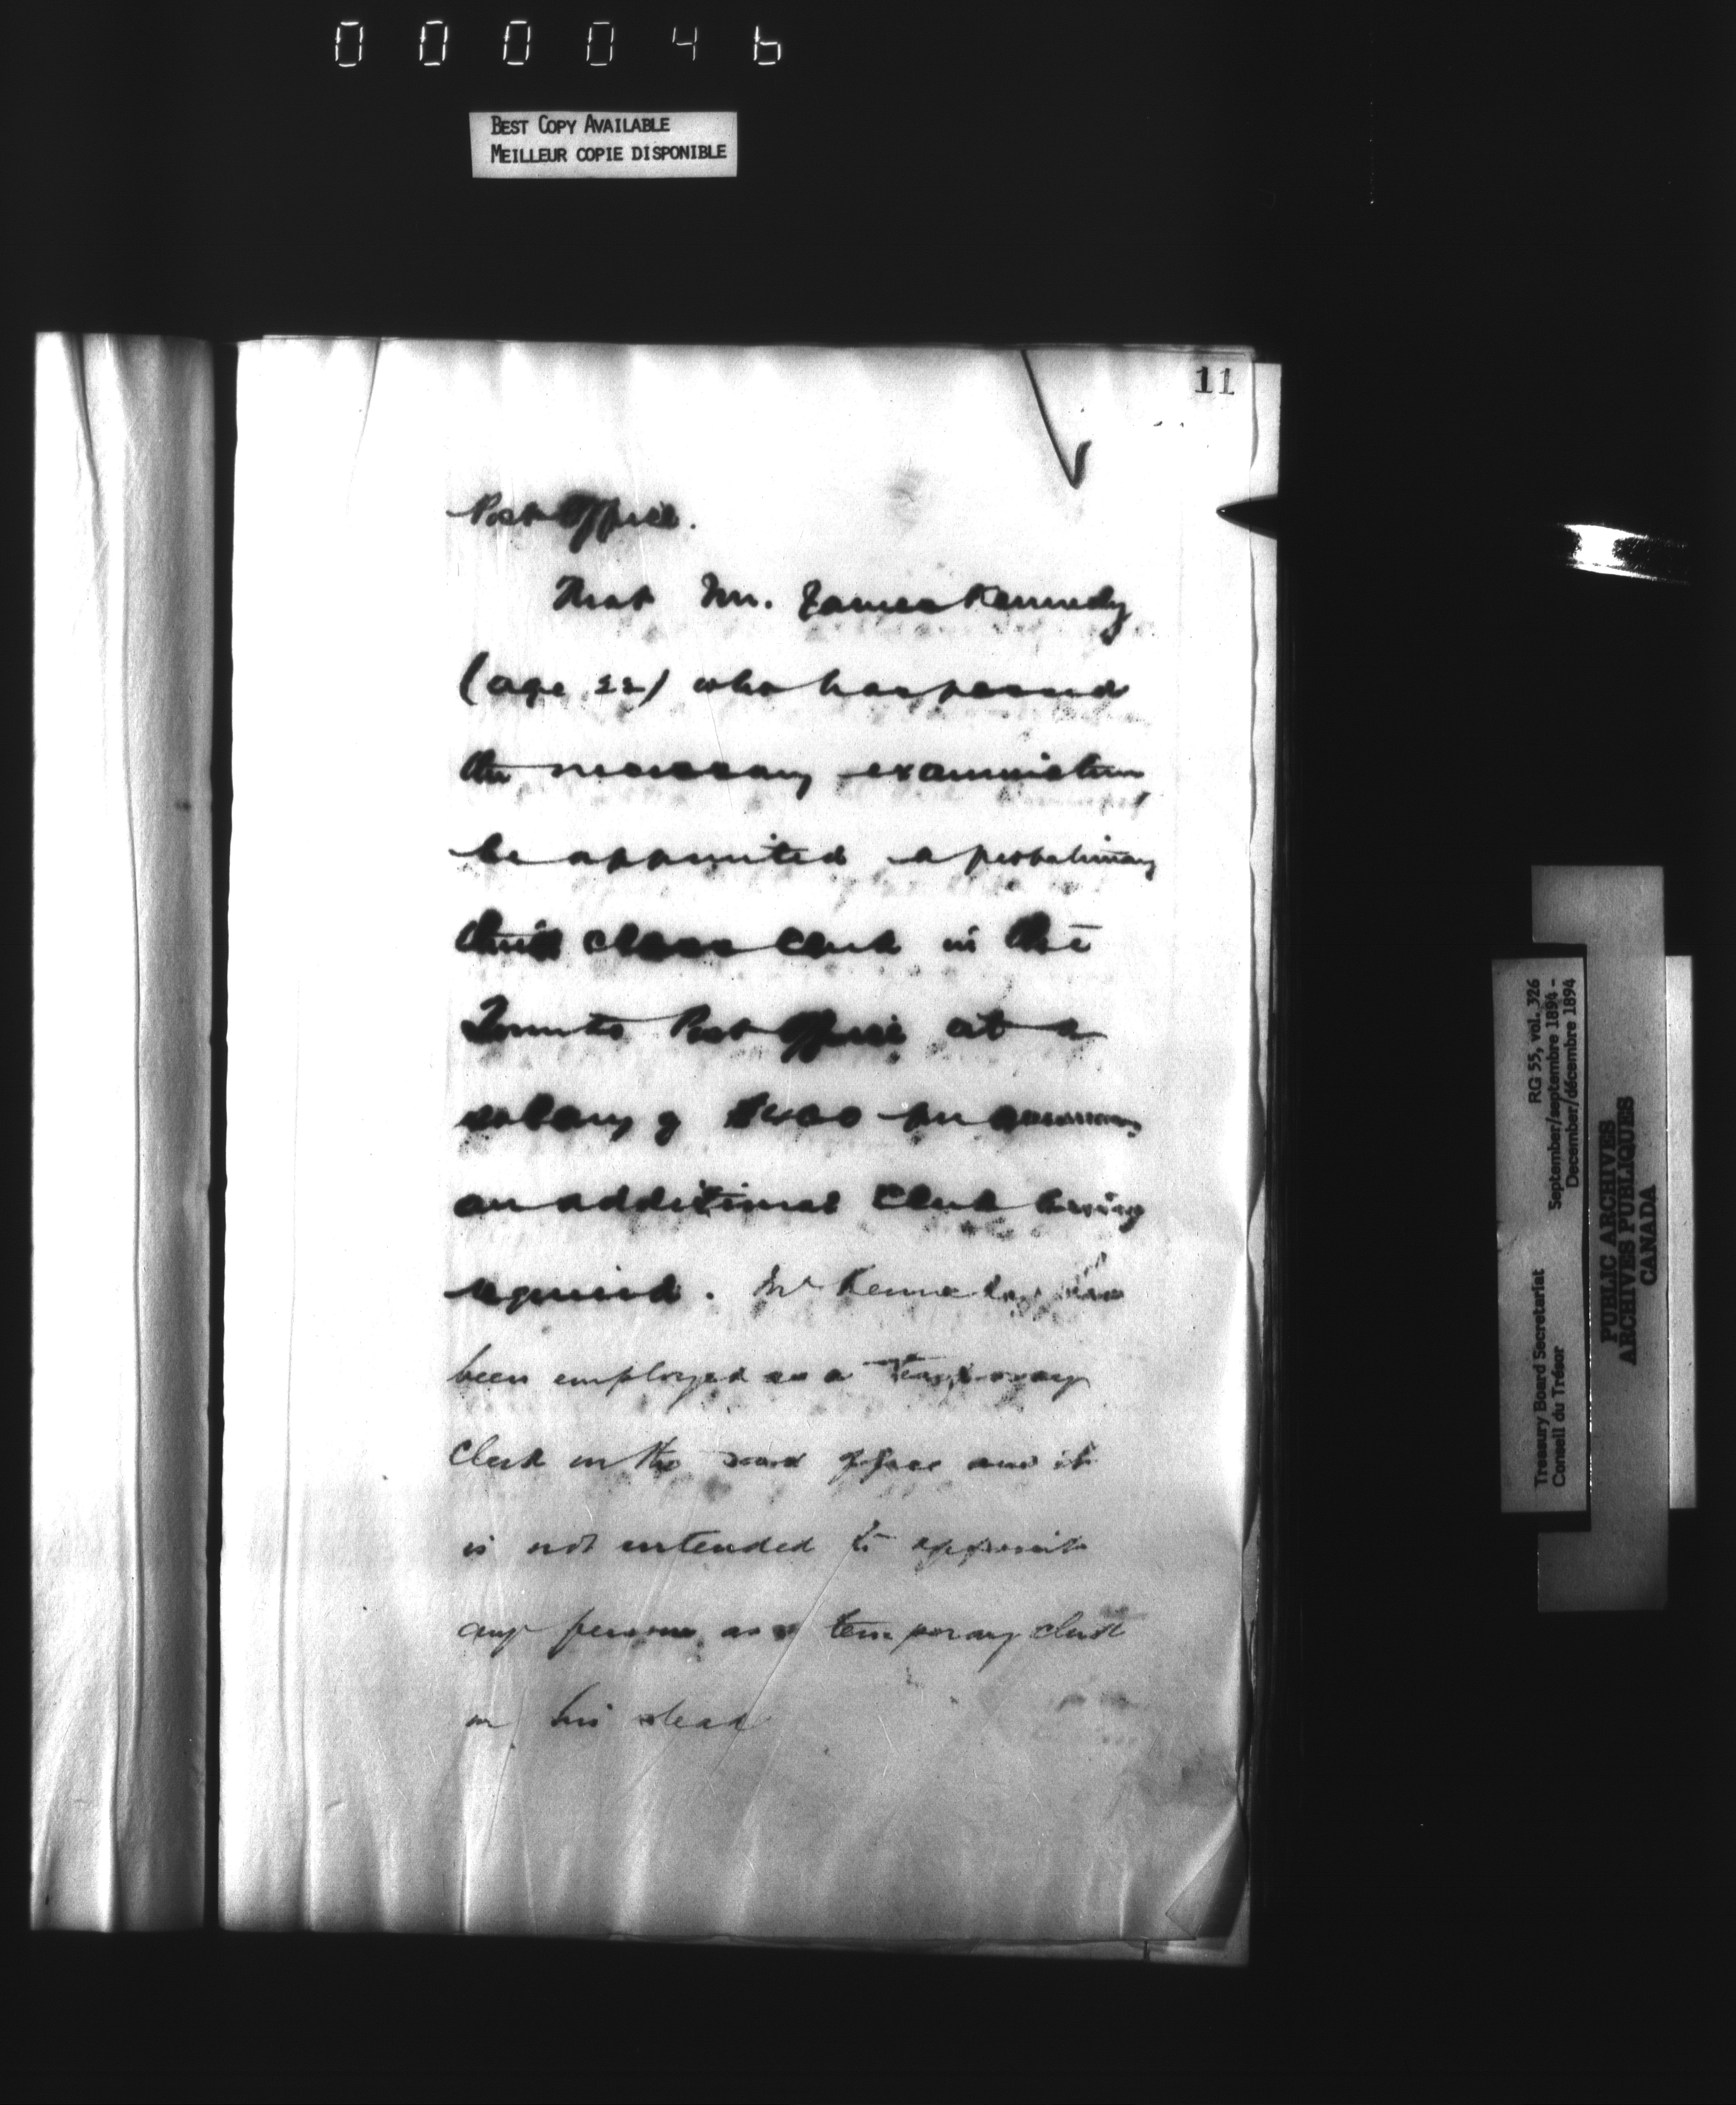 000046
BEST COPY AVAILABLE
MEILLEUR COPIE DISPONIBLE
11
Post Office.
That Mr. James Kennedy
(age 22) who has passed
the necessary examination,
be appointed a probationary
third class Clerk in the
Toronto Post Office at a
salary of $400 per annum,
an additional Clerk being
required. Mr Kennedy has
been employed as a temporary
Clerk in the said office and it
is not intended to appoint
any person as a temporary clerk
in his stead
RG 55, vol. 326
September/septembre 1894 -
December/décembre 1894
Treasury Board Secretariat
Conseil du Trésor
PUBLIC ARCHIVES
ARCHIVES PUBLIQUES
CANADA